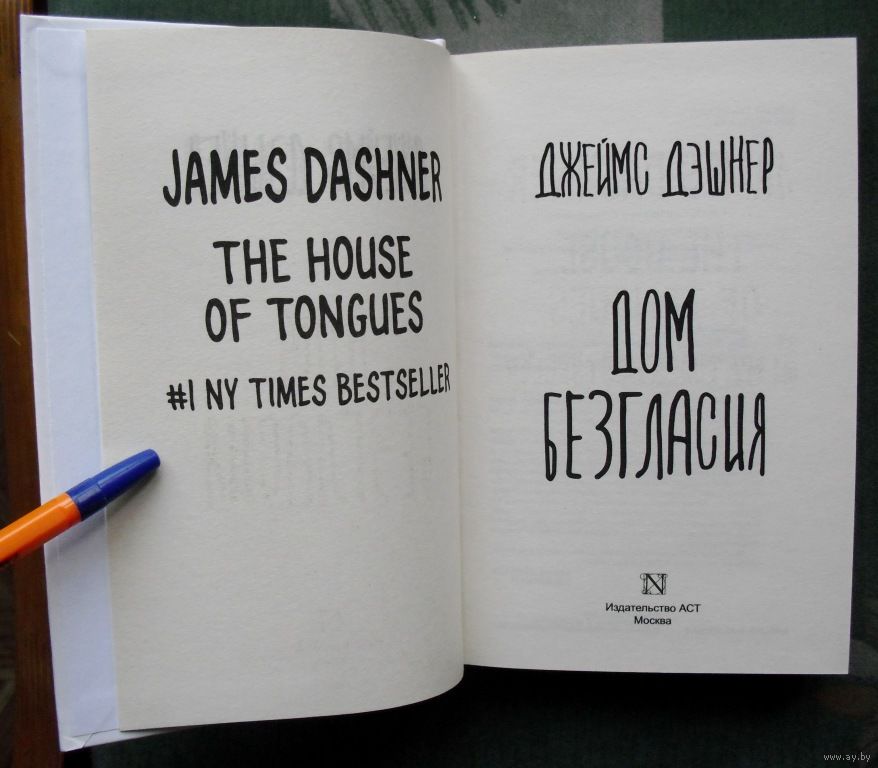 JAMES DASHNER
THE HOUSE
OF TONGUES
#1 NY TIMES BESTSELLER
ДЖЕЙМС ДЭШНЕР
ДОМ
БЕЗГЛАСИЯ
N
Издательство АСТ
Москва
www.ay.by